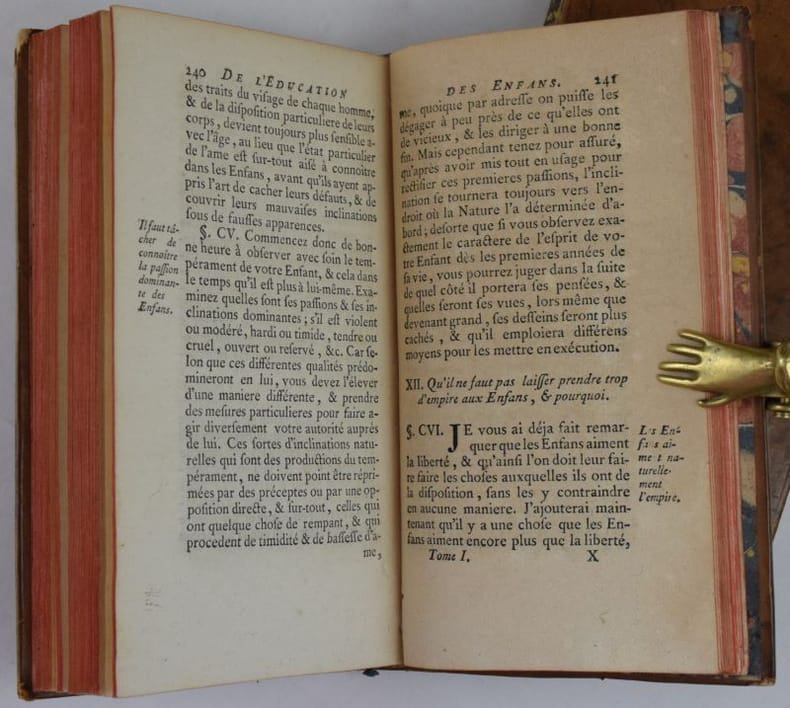 240 DE L'EDUCATION
des traits du visage de chaque homme,
& de la disposition particuliere de leurs
corps, devient toujours plus sensible a-
vec l'âge, au lieu que l'état particulier
de l'ame est sur-tout aisé à connoître
dans les Enfans, avant qu'ils ayent ap-
pris l'art de cacher leurs défauts, & de
couvrir leurs mauvaises inclinations
sous de fausses apparences.
Il faut tâ-
cher de
connoître
la passion
dominan-
te des
Enfans.
§. CV. Commencez donc de bon-
ne heure à observer avec soin le tem-
pérament de votre Enfant, & cela dans
le temps qu'il est plus à lui-même. Exa-
minez quelles sont ses passions & ses in-
clinations dominantes; s'il est violent
ou modéré, hardi ou timide, tendre ou
cruel, ouvert ou reservé, &c. Car se-
lon que ces différentes qualités prédo-
mineront en lui, vous devez l'élever
d'une maniere différente, & prendre
des mesures particulieres pour faire a-
gir diversement votre autorité auprès
de lui. Ces sortes d'inclinations natu-
relles qui sont des productions du tem-
pérament, ne doivent point être répri-
mées par des préceptes ou par une op-
position directe, & sur-tout, celles qui
ont quelque chose de rampant, & qui
procedent de timidité & de bassesse d'a-
me,
DES ENFANS. 241
me, quoique par adresse on puisse les
dégager à peu près de ce qu'elles ont
de vicieux, & les diriger à une bonne
fin. Mais cependant tenez pour assuré,
qu'après avoir mis tout en usage pour
rectifier ces premieres passions, l'incli-
nation se tournera toujours vers l'en-
droit où la Nature l'a déterminée d'a-
bord; desorte que si vous observez exa-
ctement le caractère de l'esprit de vo-
tre Enfant dès les premieres années de
sa vie, vous pourrez juger dans la suite
de quel côté il portera ses pensées, &
quelles seront ses vues, lors même que
devenant grand, ses desseins seront plus
cachés, & qu'il emploiera différens
moyens pour les mettre en exécution.
XII. Qu'il ne faut pas laisser prendre trop
d'empire aux Enfans, & pourquoi.
§. CVI. JE vous ai déja fait remar-
quer que les Enfans aiment
la liberté, & qu'ainsi l'on doit leur fai-
re faire les choses auxquelles ils ont de
la disposition, sans les y contraindre
en aucune maniere. J'ajouterai main-
tenant qu'il y a une chose que les En-
fans aiment encore plus que la liberté,
Les En-
fans ai-
me t na-
turelle-
ment
l'empire.
Tome I. X